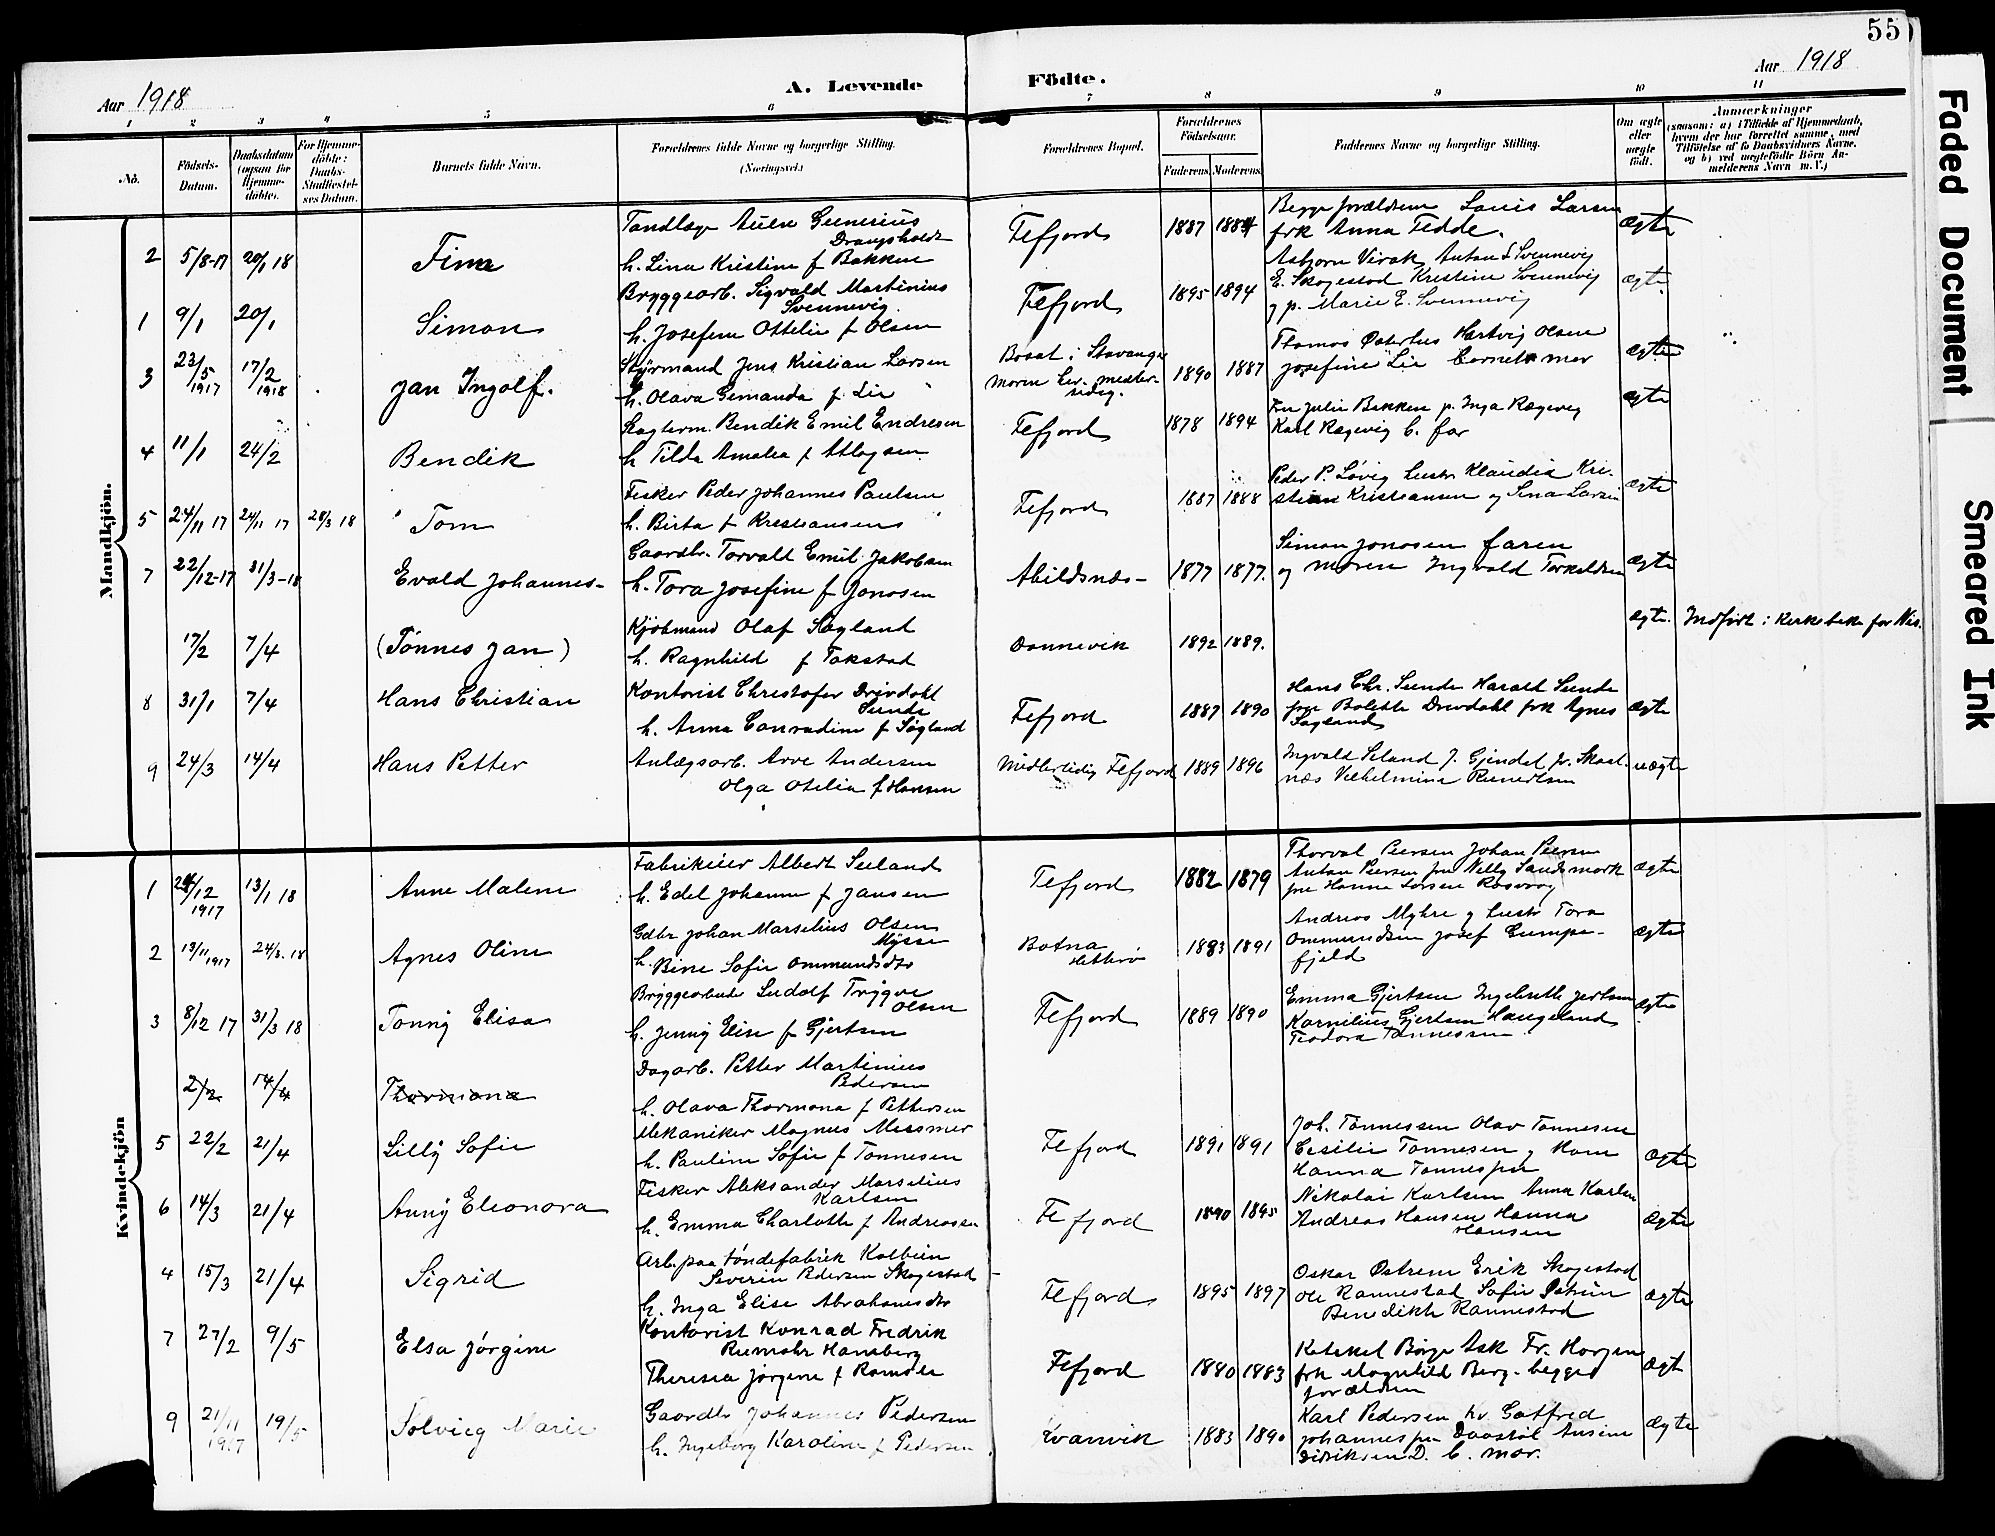 55
Aar 1918
A. Levende Födte.
Aar 1918
1 2 3 4 5 6 7 8 9 10 11
No.
Födsels-Datum.
Daabsdatum (ogsaa for Hjemmedöbte).
For Hjemmedöbte: Daabs-Stadfæstelses Datum.
Barnets fulde Navn.
Forældrenes fulde Navne og borgerlige Stilling. (Næringsvei.)
Forældrenes Bopæl.
Forældrenes Födselsaar.
Faderens Moderens
Faddernes Navne og borgerlige Stilling.
Om ægte eller uægte födt.
Anmærkninger
(saasom: a) i Tilfælde af Hjemmedaab, hvem der har forrettet samme, med Tilföielse af to Daabsvidners Navne. og b) ved uægtefödte Börn Anmelderens Navn m. V.)
Mandkjön.
2 5/8-17 20/1 18
Tandlæge
Drangsholdt
h. Lina Kristine f Bakken
Fefjord 1887 1884
Begge forældrene Louis Larsen
frk Anna Tedde.
ægte
1 9/1 20/1 Simon
Bryggearb. Sigvald Martinius
Svennevig
h. Josefine Ottelie f Olsen
Fefjord 1895 1894
Asbjorn Virak, Anton S Svennevig
E. Skogestad Kristine Svennevig
g p. Marie E. Svennevig
ægte
3 23/5 1917 17/2 1918 Jan Ingolf.
Styrmand Jens Kristian Larsen
h. Olava Gemanda f. Lie
Bosat i Stavanger
moren her midler-
tidig.
1890 1887
Thomas Hartvig Olsen
Josefine Lie barnets mor
ægte
4 11/1 24/2 Bendik
Bendik Emil Endresen
h Tilda Amalia f Atlagsen
Fefjord 1878 1894
Fru Julie Bakken p. Inga Rægevig
Karl Rægevig b. far
ægte
5 24/11 17 24/11 17 28/3 18 Tom
Fisker Peder Johannes Paulsen
h. Birta f Kristiansen
Fefjord 1887 1888
Peder P. Løvig hustr Klaudia Kri-
stian Kristiansen og Sina Larsen
ægte
7 22/12-17 31/3-18 Evald Johannes-
Gaardbr. Torvald Emil Jakobsen
h. Tora Josefine f Jonosen
Abildsnæs- 1877 1877.
Simon Jonosen faren
og moren Ingvald Torkeldsen
ægte
17/2 7/4 (Tönnes Jan)
Kjöbmand Olaf Søgland
h. Ragnhild f Takstad
1892 1889.
ægte. Indført i kirkeboken for Nes.
8 31/1 7/4 Hans Christian
Kontorist Christofer Drivdahl
Sunde
h. Anna Conradine f Søgland
Fefjord 1887 1890
Hans Chr. Sunde Harald Sunde
fru Bolette Drivdahl frk Agnes
Søgland
ægte
9 24/3 14/4 Hans Petter
Anlægsarb. Arve Andersen
Olga Otelia f Hansen
Midlertidig Fefjord 1889 1896
Ingvald Seland J. Gjendel
Vilhelmine
uægte
Kvindekjön
1 12 1917 13/1 18 Anne Malene
Fabrikeier Albert Seeland
h. Edel Johanne f Jansen
Fefjord 1882 1879
Thorval Peersen Johan Peersen
Anton Peersen fru Nelly Sandsmark
fru Hanna
ægte
2 13/11 1917 24/3-18 Agnes Oline
Gdbr Johan Marselius Olsen
h. Bine Sofie Ommundsdtr
Botna
Hitterö
1883 1891
Andreas Myhre g hustr Tora
Ommundsen Josef Gumpe-
fjeld
ægte
3 8/12 17 31/3 18 Tonny Elisa
Bryggearbeider Ludolf Trygve
Olsen
h. Jenny Elise f Gjertsen
Fefjord 1889 1890
Emma Gjertsen Ingebreth Jertsen
Kornelius Gjertsen Haugeland
Teodora Tönnessen
ægte
2/2 14/4 Thormona
Dagarb. Petter Martinius
Pedersen
h. Olava Thormona f Pettersen
5 22/2 21/4 Lilly Sofie
Mekaniker Magnus Messmer
h. Pauline Sofie f Tönnesen
Flefjord 1891 1891
Joh. Tönnessen Olav Tönnesen
Cesilie Tönnesen g Mom
Hanna Tönnesen
ægte
6 14/3 21/4 Anny Eleonora
Fisker Aleksander Marselius
Karlsen
h. Emma Charlotte f Andreassen
Flefjord 1890 1895
Nikolai Karlsen Anna Karlsen
Andreas Hansen Hanna
Hansen
ægte
4 15/3 21/4 Sigrid
Arb. paa töndefabrik Kolbein
Severin Pedersen Skogestad
h. Inga Elise Abrahamsdtr
Flefjord 1895 1897
Oskar Østrem Erik Skogestad
Ole Rannestad Sofie Østrem
Benedikte Rannestad
ægte
7 27/2 9/5 Elsa Jörgine
Kontorist Konrad Fredrik
Rumohr Hamberg
Theresia Jörgine f Ramdle
Flefjord 1880 1883
Katekel Börge Ask Fr. Horgen
frk Magnhild Berg. begge
forældren
ægt
9 21/11 1917 19/5 Solveig Marie
Gaardbr Johannes Pedersen
h. Ingeborg Karoline f Pedersen
Kvanvik 1883 1890
Karl Pedersen hv Gotfred
Johannes fru
Didriksen D. b. mor.
ægte
Faded Document
Smeared Ink